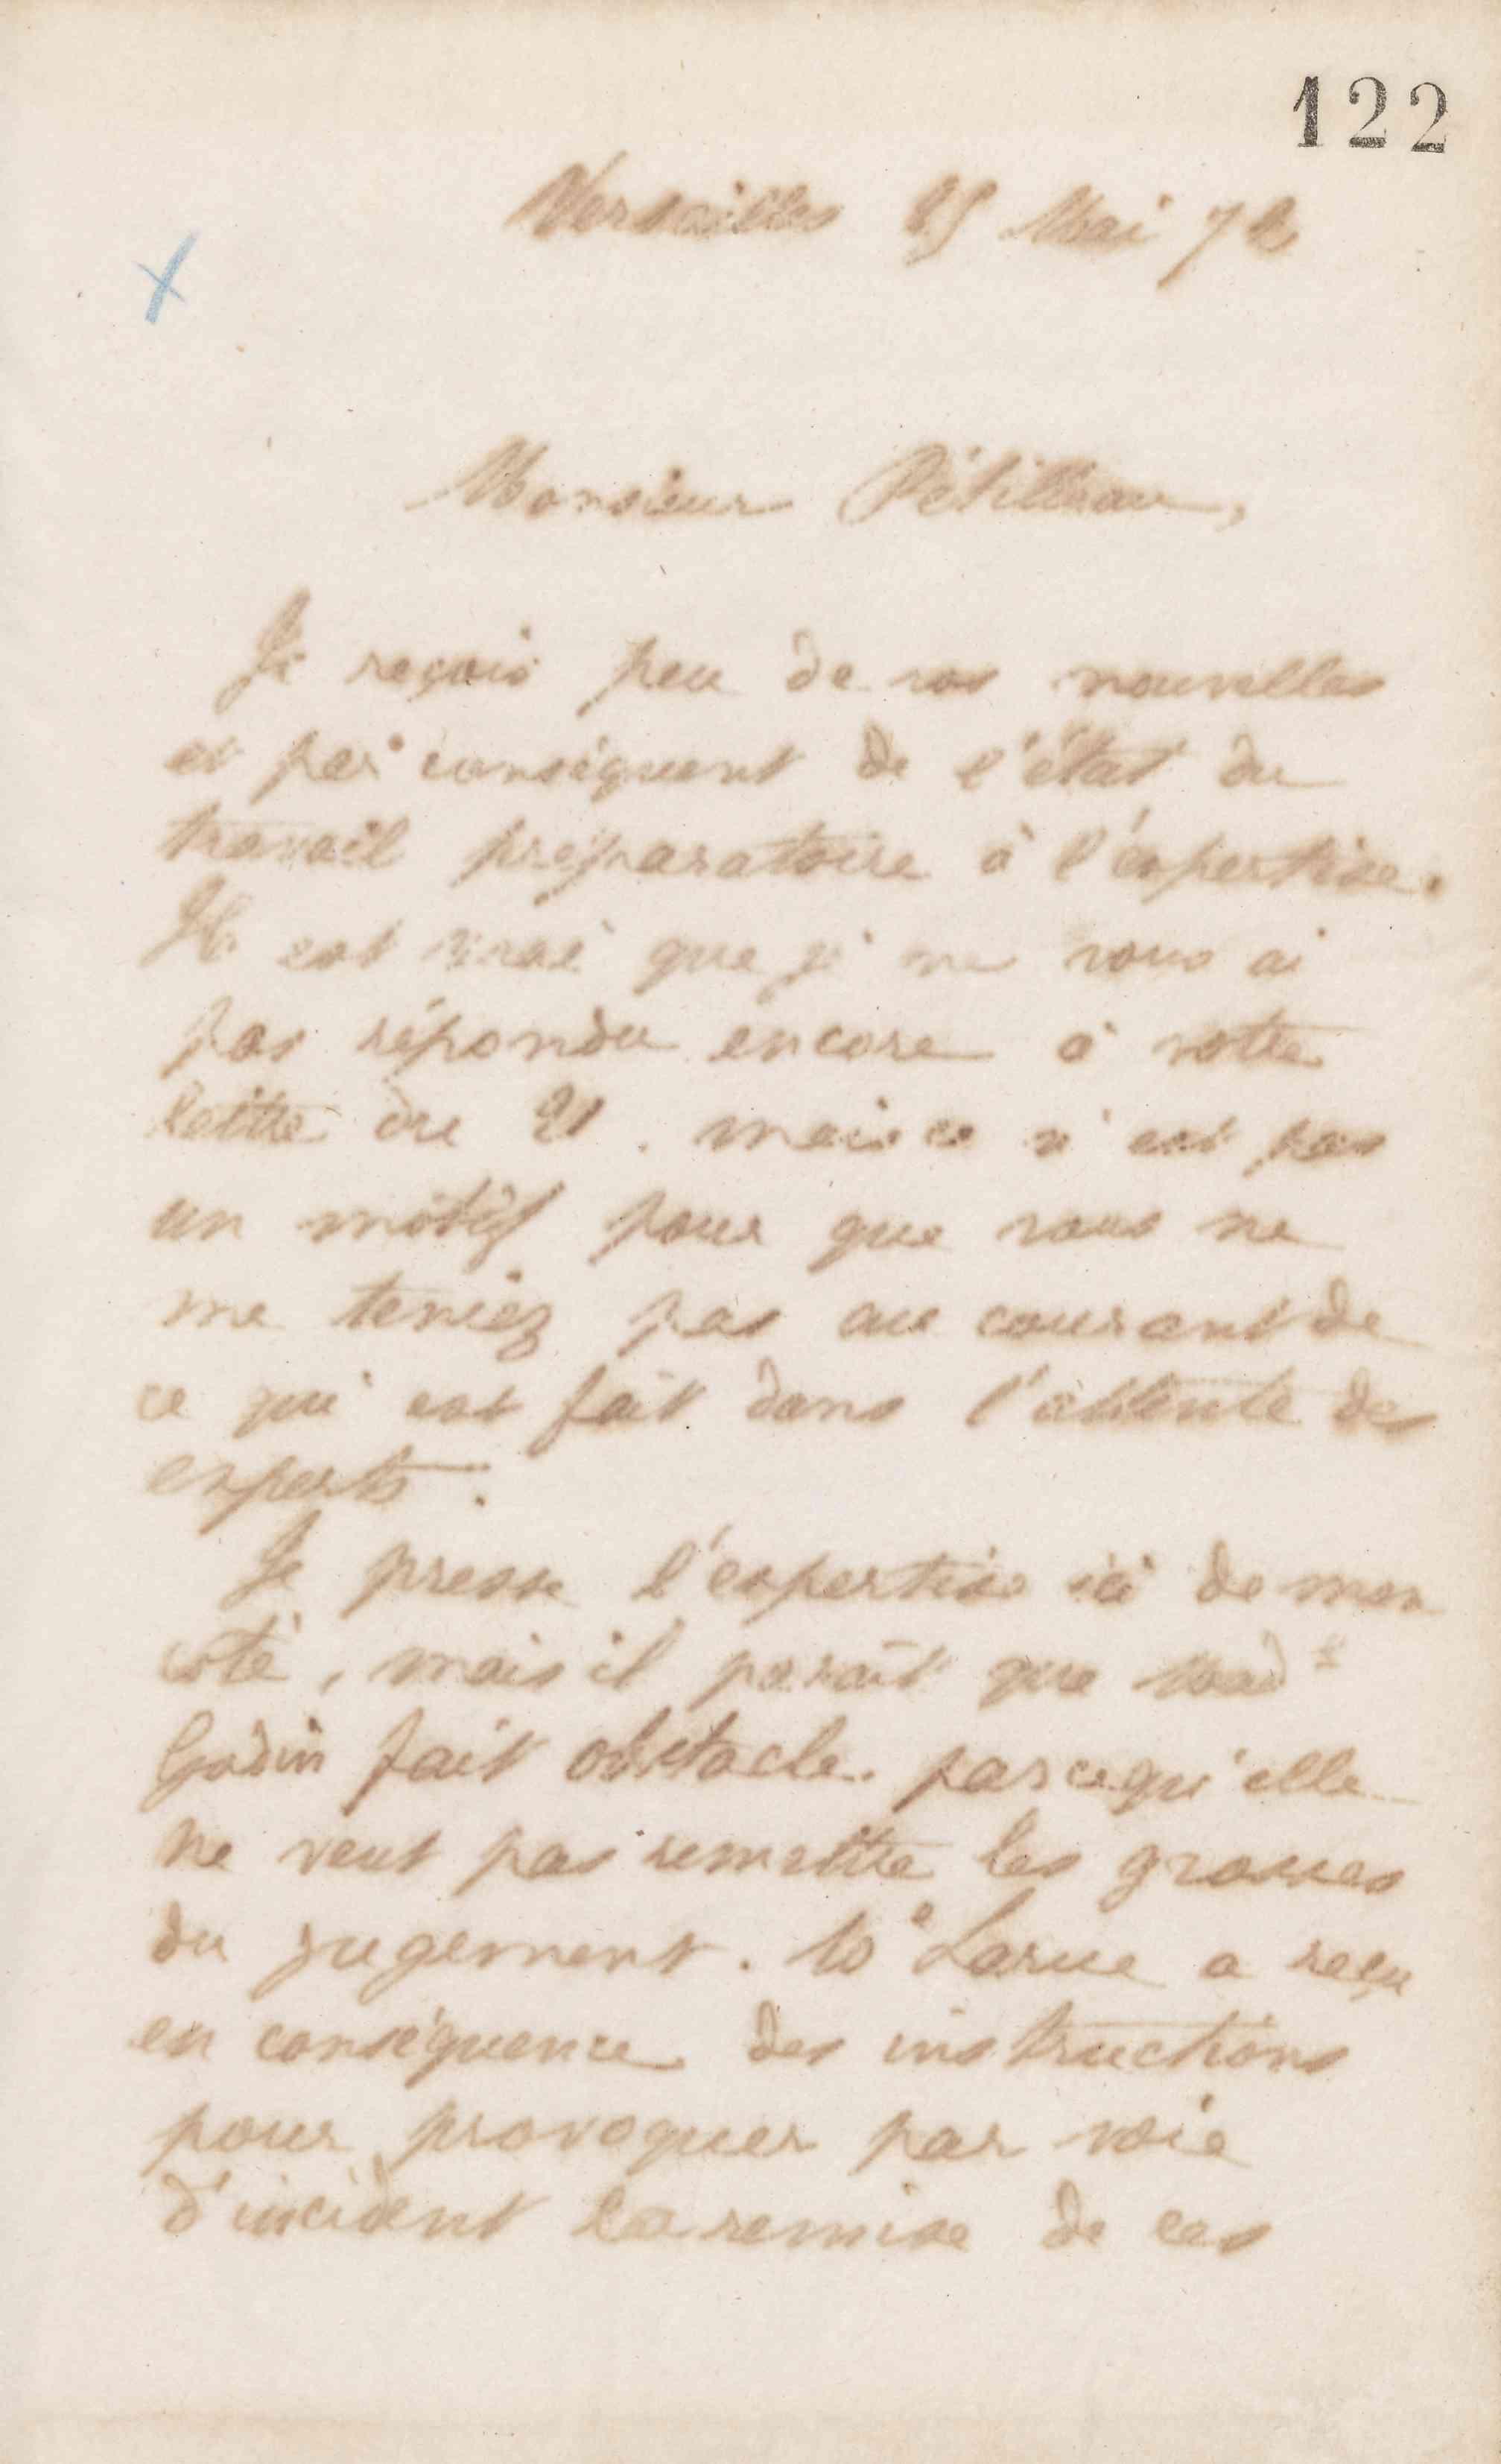 122
Versailles 25 Mai 72
Monsieur Pétilleau,
Je reçois peu de vos nouvelles
et par conséquent de l'état du
travail préparatoire à l'expertise.
Il est vrai que je ne vous ai
pas répondu encore à votre
lettre du 21. mais ce n'est pas
un motif pour que vous ne
me teniez pas au courant de
ce qui est fait dans l'attente des
experts.
Je presse l'expertise ici de mon
côté, mais il paraît que Mad^e
Godin fait obstacle. parcequ'elle
ne veut pas remettre les grosses
du jugement. M^e Larue a reçu
en conséquence des instructions
pour provoquer par voie
d'incident la remise de ces